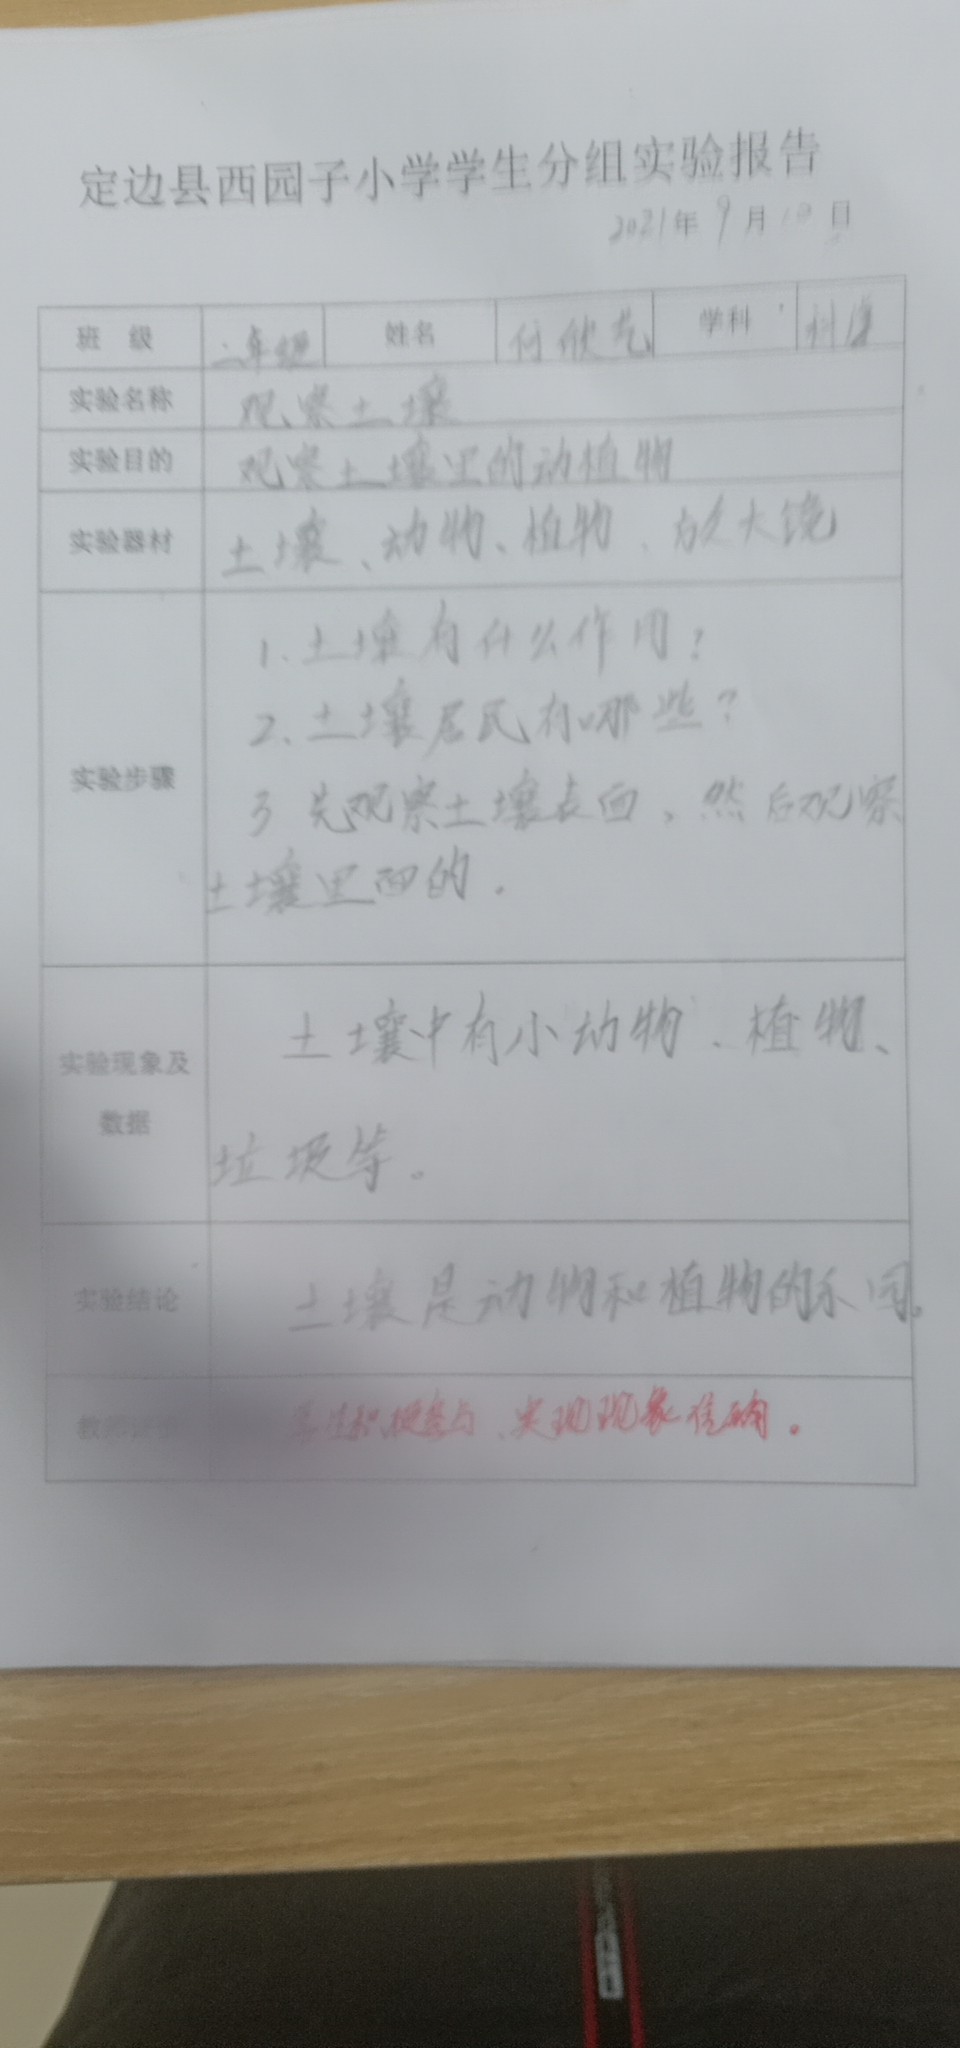 定边县西园子小学学生分组实验报告
2021年 9月 10日
班 级 二年级 姓名 何欣艺 学科 科学
实验名称 观察土壤
实验目的 观察土壤里的动植物
实验器材 土壤、动物、植物、放大镜
实验步骤 1. 土壤有什么作用?
2. 土壤居民有哪些?
3 先观察土壤表面,然后观察
土壤里面的.
实验现象及
数据
土壤中有小动物、植物、
垃圾等。
实验结论 土壤是动物和植物的乐园。
学生积极参与、实现现象准确。